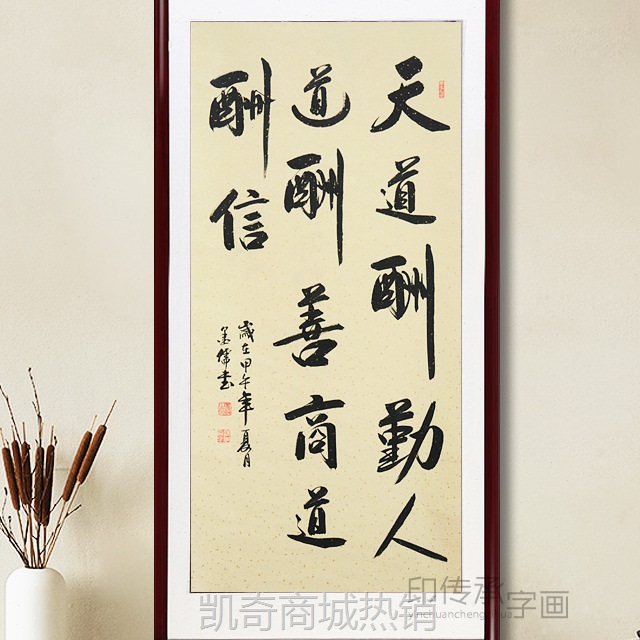 天道酬勤人
道酬善商道
酬信
歲在甲午年夏月
墨儒书
印传承字画
yinchuanchengzihua
凯奇商城热销